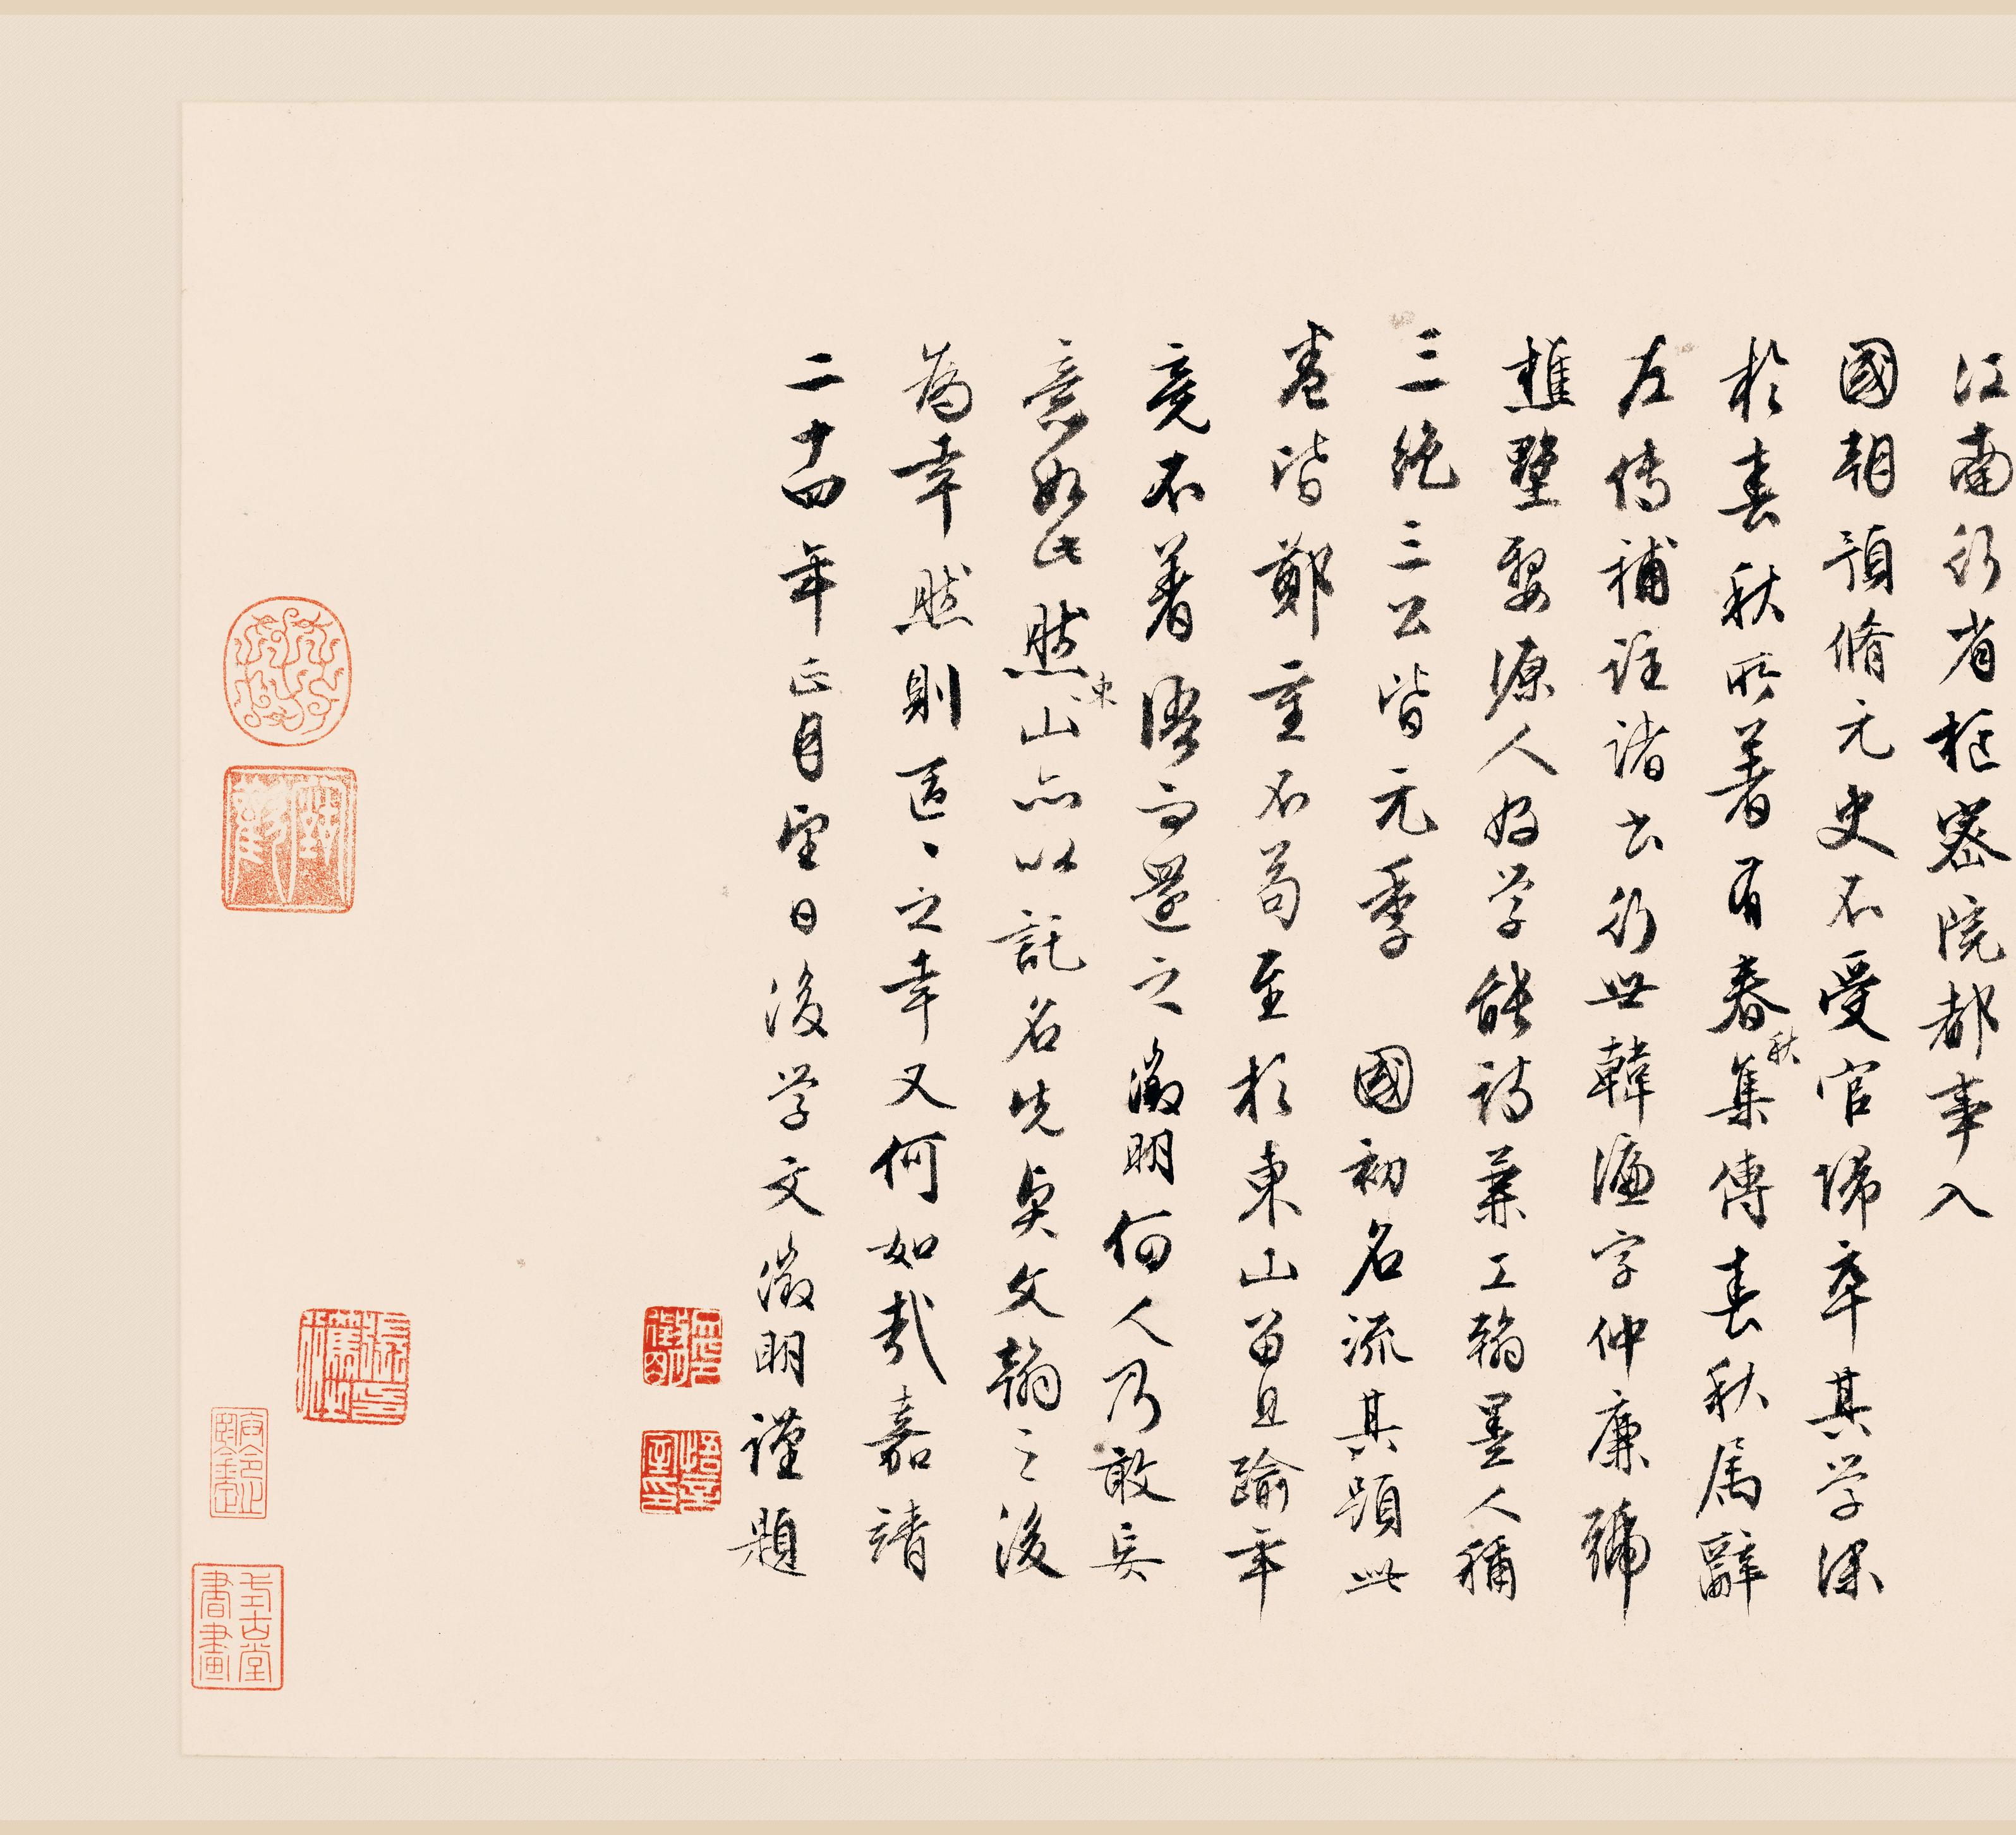 江南行省枢密院都事入
國朝預脩元史不受官歸卒其学深
於春秋所著有春秋集傳春秋属辭
左傳補註諸書行世韓濂字仲廉號
樵墅婺源人好学能詩兼工翰墨人称
三絶三公皆元季 國初名流其題此
卷皆鄭重不苟至於東山留且踰年
竟不著語而還之徵明何人乃敢妄
意如此然東山亦以託名先奐文翰之後
為幸然則區、之幸又何如哉嘉靖
二十四年正月望日後学文徵明謹題
徵明
悟言室印
式古堂書畫